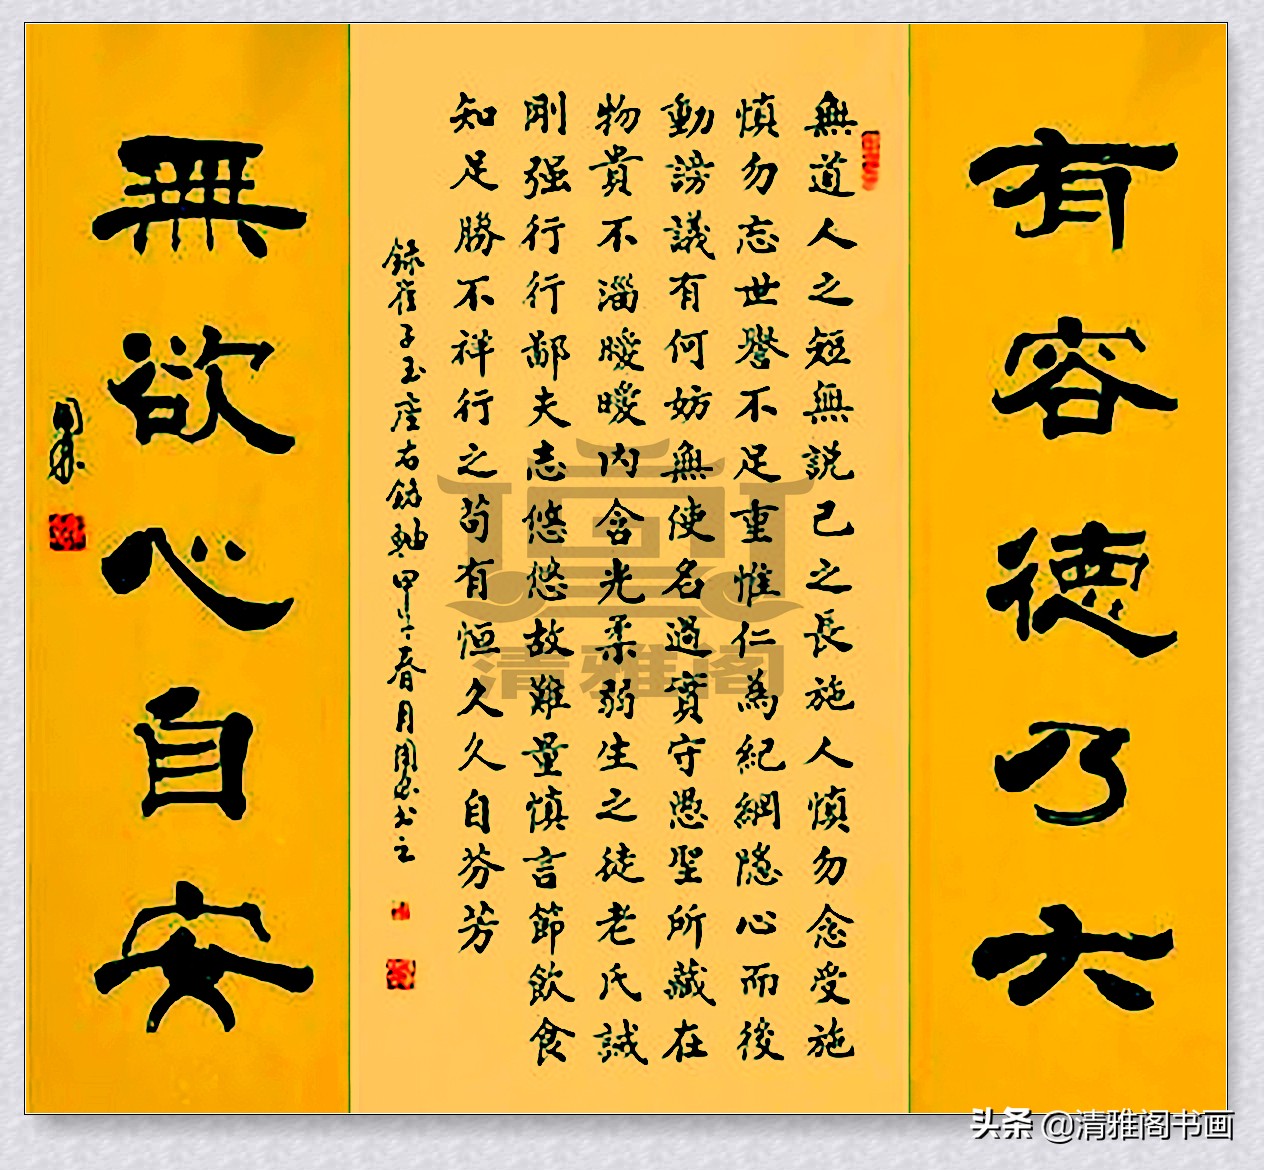 有容德乃大
無道人之短無説己之長施人慎勿念受施
慎勿忘世譽不足重惟仁為紀綱隱心而後
動謗議有何妨無使名過實守愚聖所藏在
物貴不淄曖曖內含光柔弱生之徒老氏誡
剛强行行鄙夫志悠悠故難量慎言節飲食
知足勝不祥行之苟有恒久久自芬芳
錄崔子玉座右銘軸甲午春月书之
無欲心自安
清雅阁
头条 @清雅阁书画